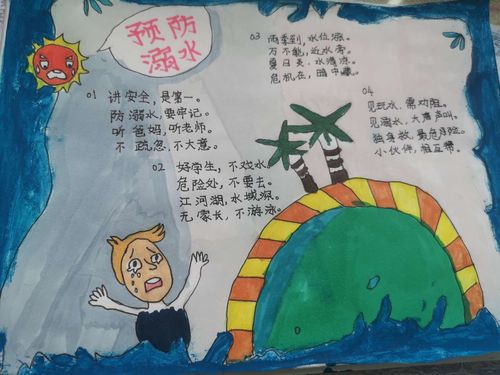 预防
溺水
01 讲安全,是第一。
防溺水,要牢记。
听爸妈,听老师。
不疏忽,不大意。
02 好学生,不戏水,
危险处,不要去。
江河湖,水域深。
无家长,不游泳。
03 雨季到,水位涨。
万不能,近水旁。
夏日炎,水清凉。
危机在,暗中藏。
04
见玩水,需劝阻。
见溺水,大声叫。
独身救,最危险。
小伙伴,相互帮。